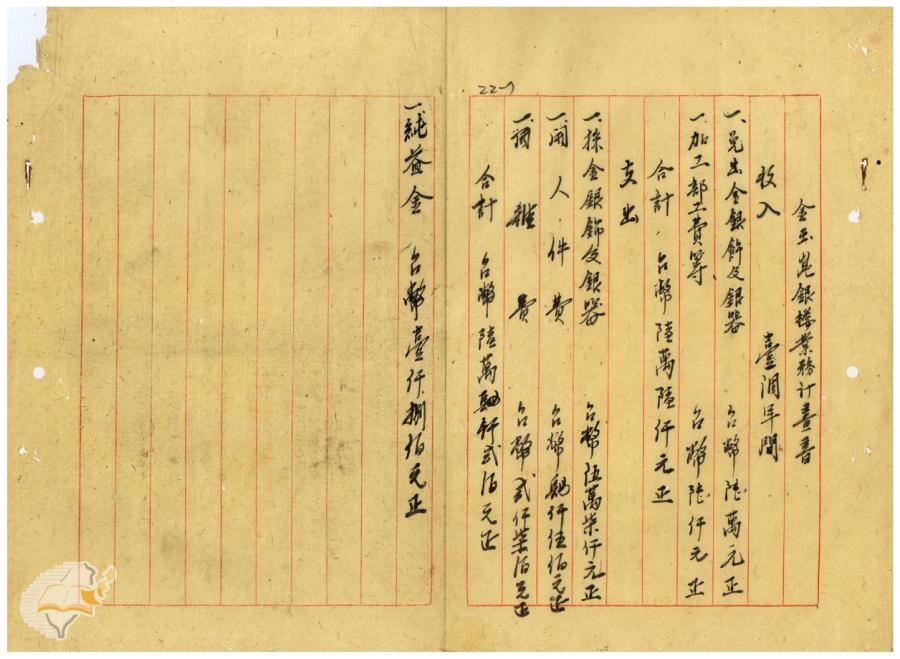 227
金玉崑銀楼業務計畫書
收入 臺個年間
一、兌出金銀飾及銀器 台幣陸萬元正
一、加工部工費等 台幣陸仟元正
合計 台幣陸萬陸仟元正
支出
一、採金銀飾及銀器 台幣伍萬柒仟元正
一、用人件費 台幣肆仟伍佰元正
一、調雜費 台幣弍仟柒佰元正
合計 台幣陸萬肆仟弍佰元正
一、純益金 台幣臺仟捌佰元正